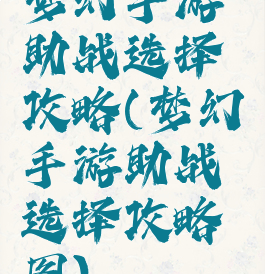 梦幻手游
助战选择
攻略(梦幻
手游助战
选择攻略
图)